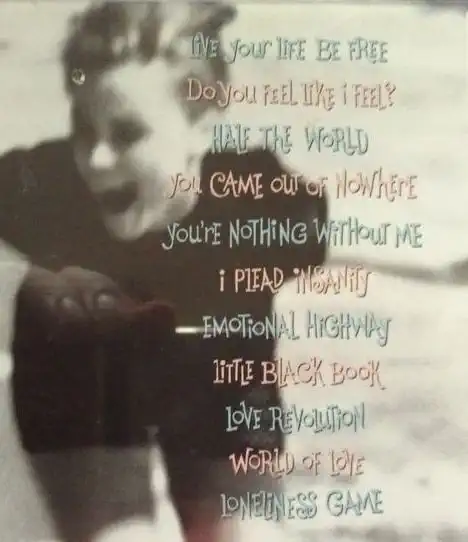 LIVE YOUR LIFE BE FREE
DO YOU FEEL LIKE I FEEL?
HALF THE WORLD
YOU CAME OUT OF NOWHERE
YOU'RE NOTHING WITHOUT ME
I PLEAD INSANITY
EMOTIONAL HIGHWAY
LITTLE BLACK BOOK
LOVE REVOLUTION
WORLD OF LOVE
LONELINESS GAME